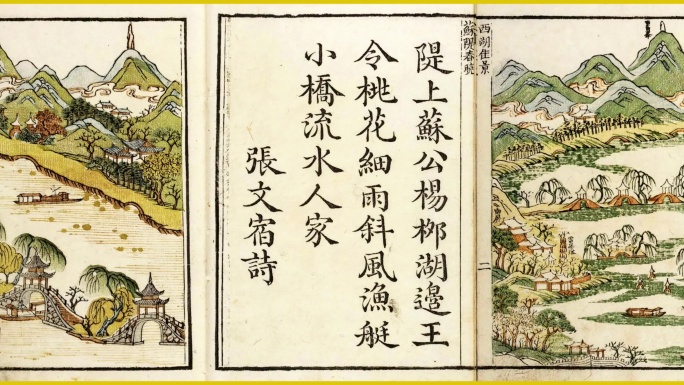 西湖佳景
蘇隄春曉
隄上蘇公楊柳湖邊王
令桃花細雨斜風漁艇
小橋流水人家
張文宿詩
二